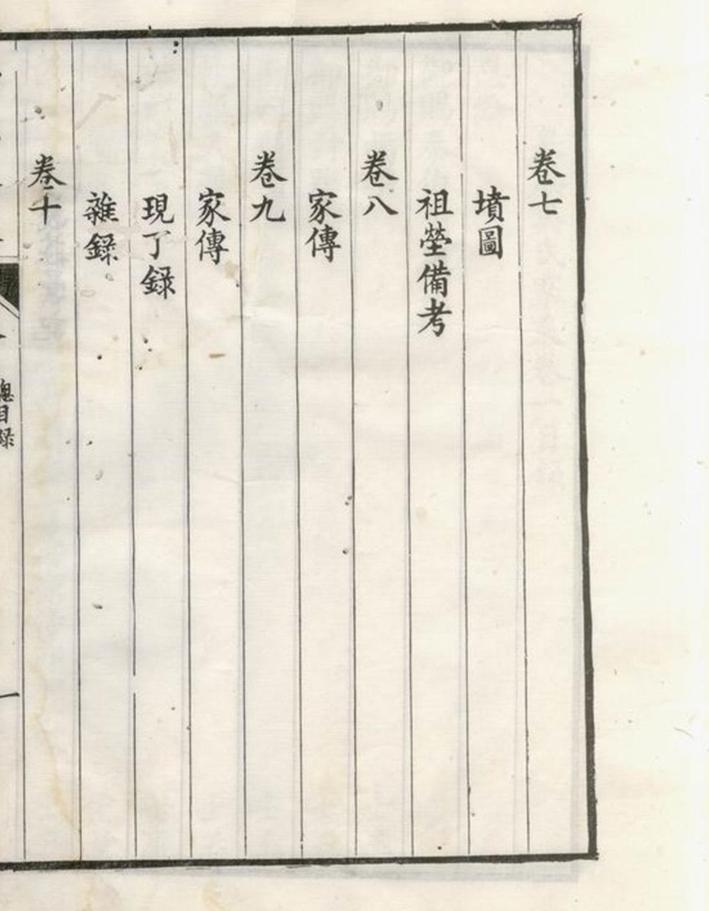 卷七
墳圖
祖塋備考
卷八
家傳
卷九
家傳
現了録
雜録
卷十
總目録
一